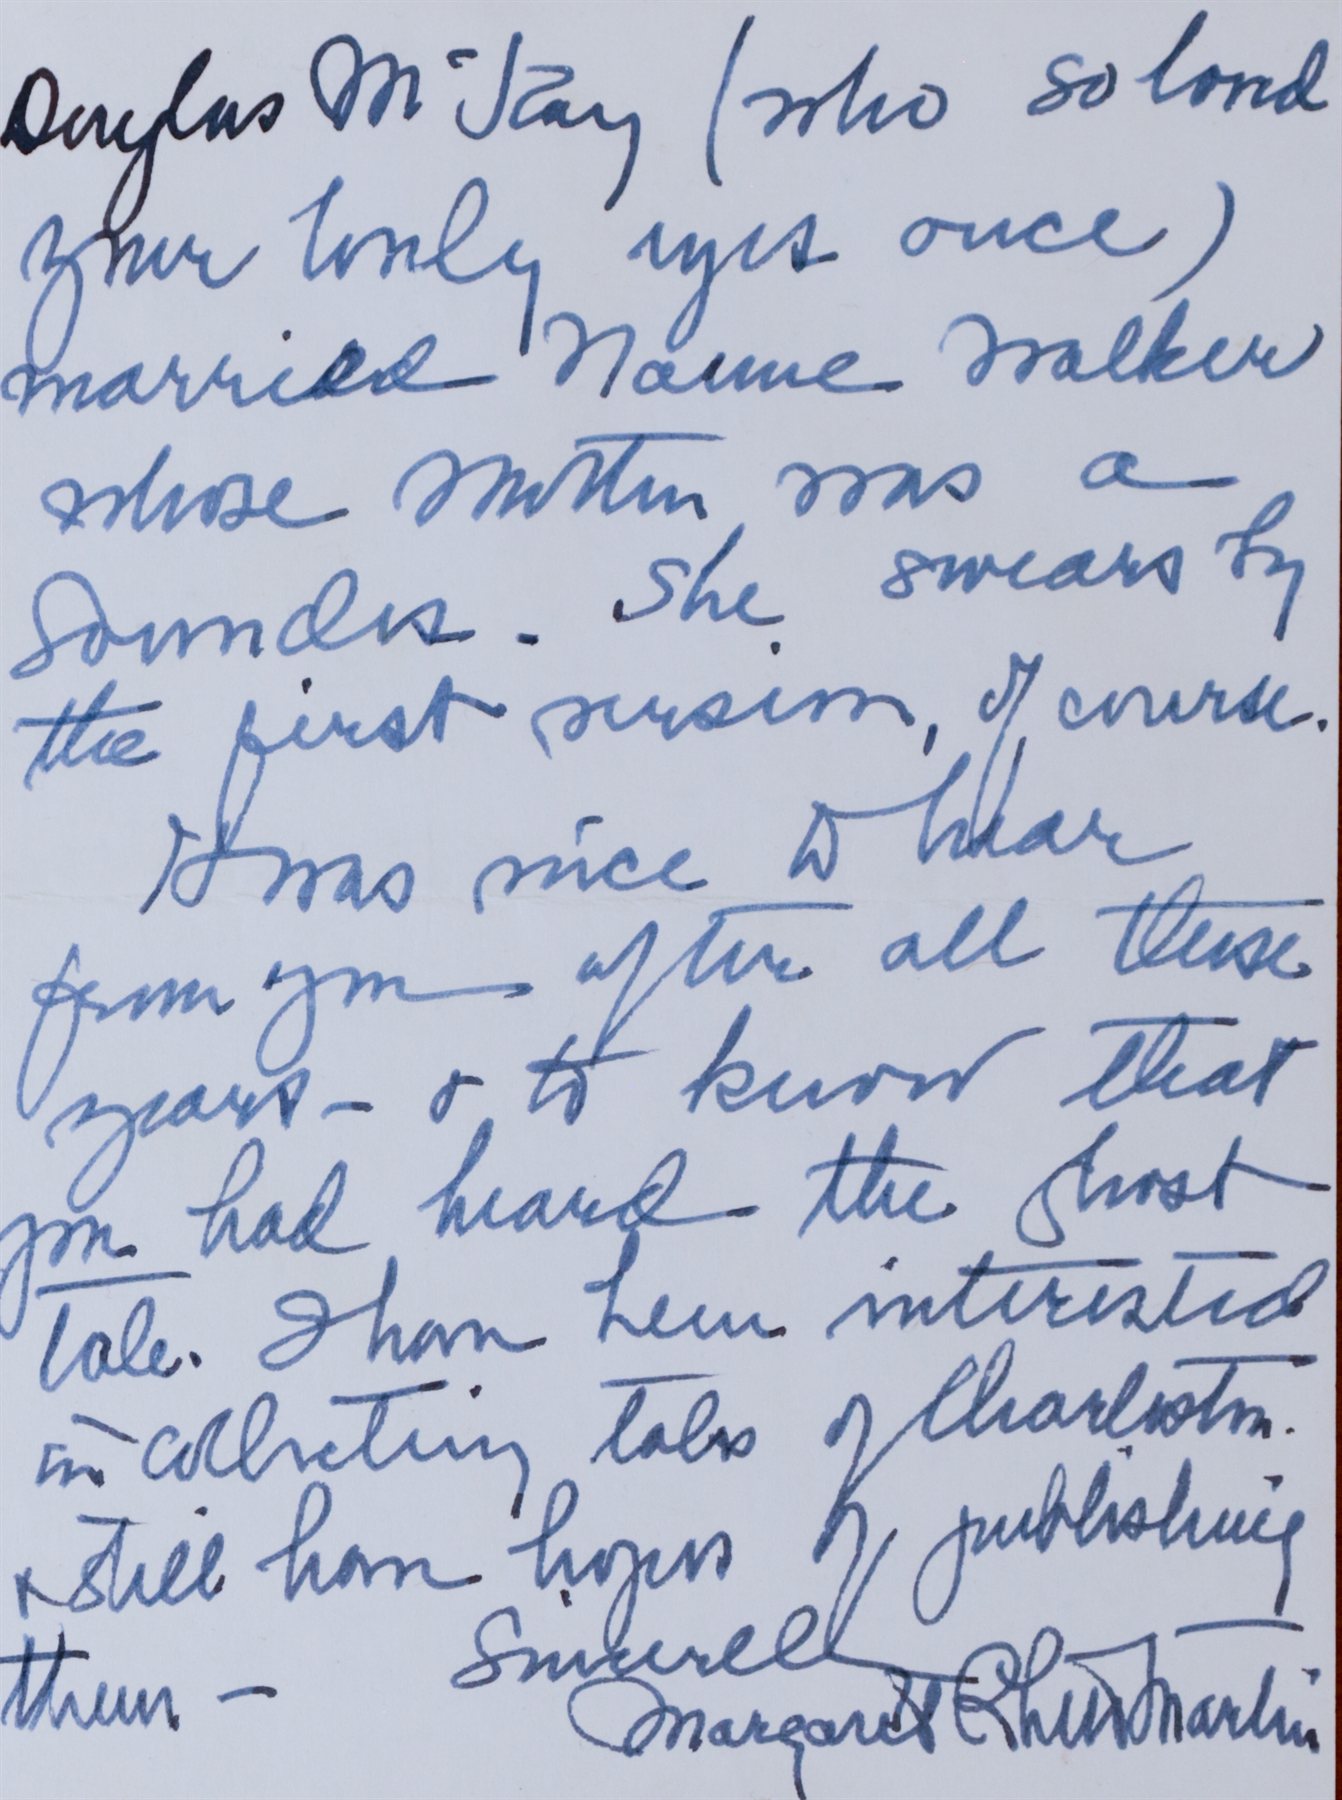 Douglas McKay (who so loved
your lovely eyes once)
married Nanne Walker
whose mother was a
Saunders. She swears by
the first version, of course.
It was nice to hear
from you after all these
years - & to know that
you had heard the ghost
tale. I have been interested
in collecting tales of Charleston.
& still have hopes of publishing
them -
Sincerely
Margaret Rhett Martin